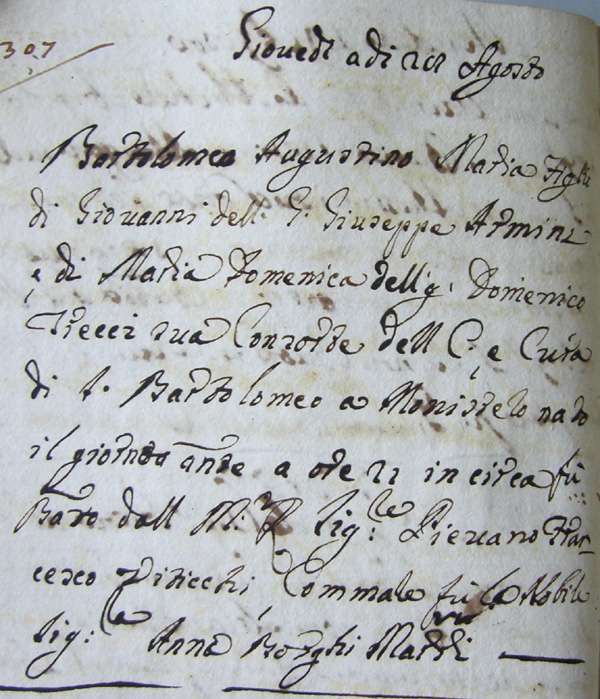 307
Giovedì adi 28 Agosto
Bartolomeo Augustino Maria Figlio
di Giovanni dell. G. Giuseppe Armini
e di Maria Domenica dell g. Domenico
Frecci sua Consorte dell C. e Cura
di S. Bartolomeo a Monistelo nato
il giorno ante a ore 21 in circa fù
Batto dall M. R. Sig.le Pievano Fran
cesco Piticchi Commale fù la Nobile
Sig.la Anna Borghi Martti